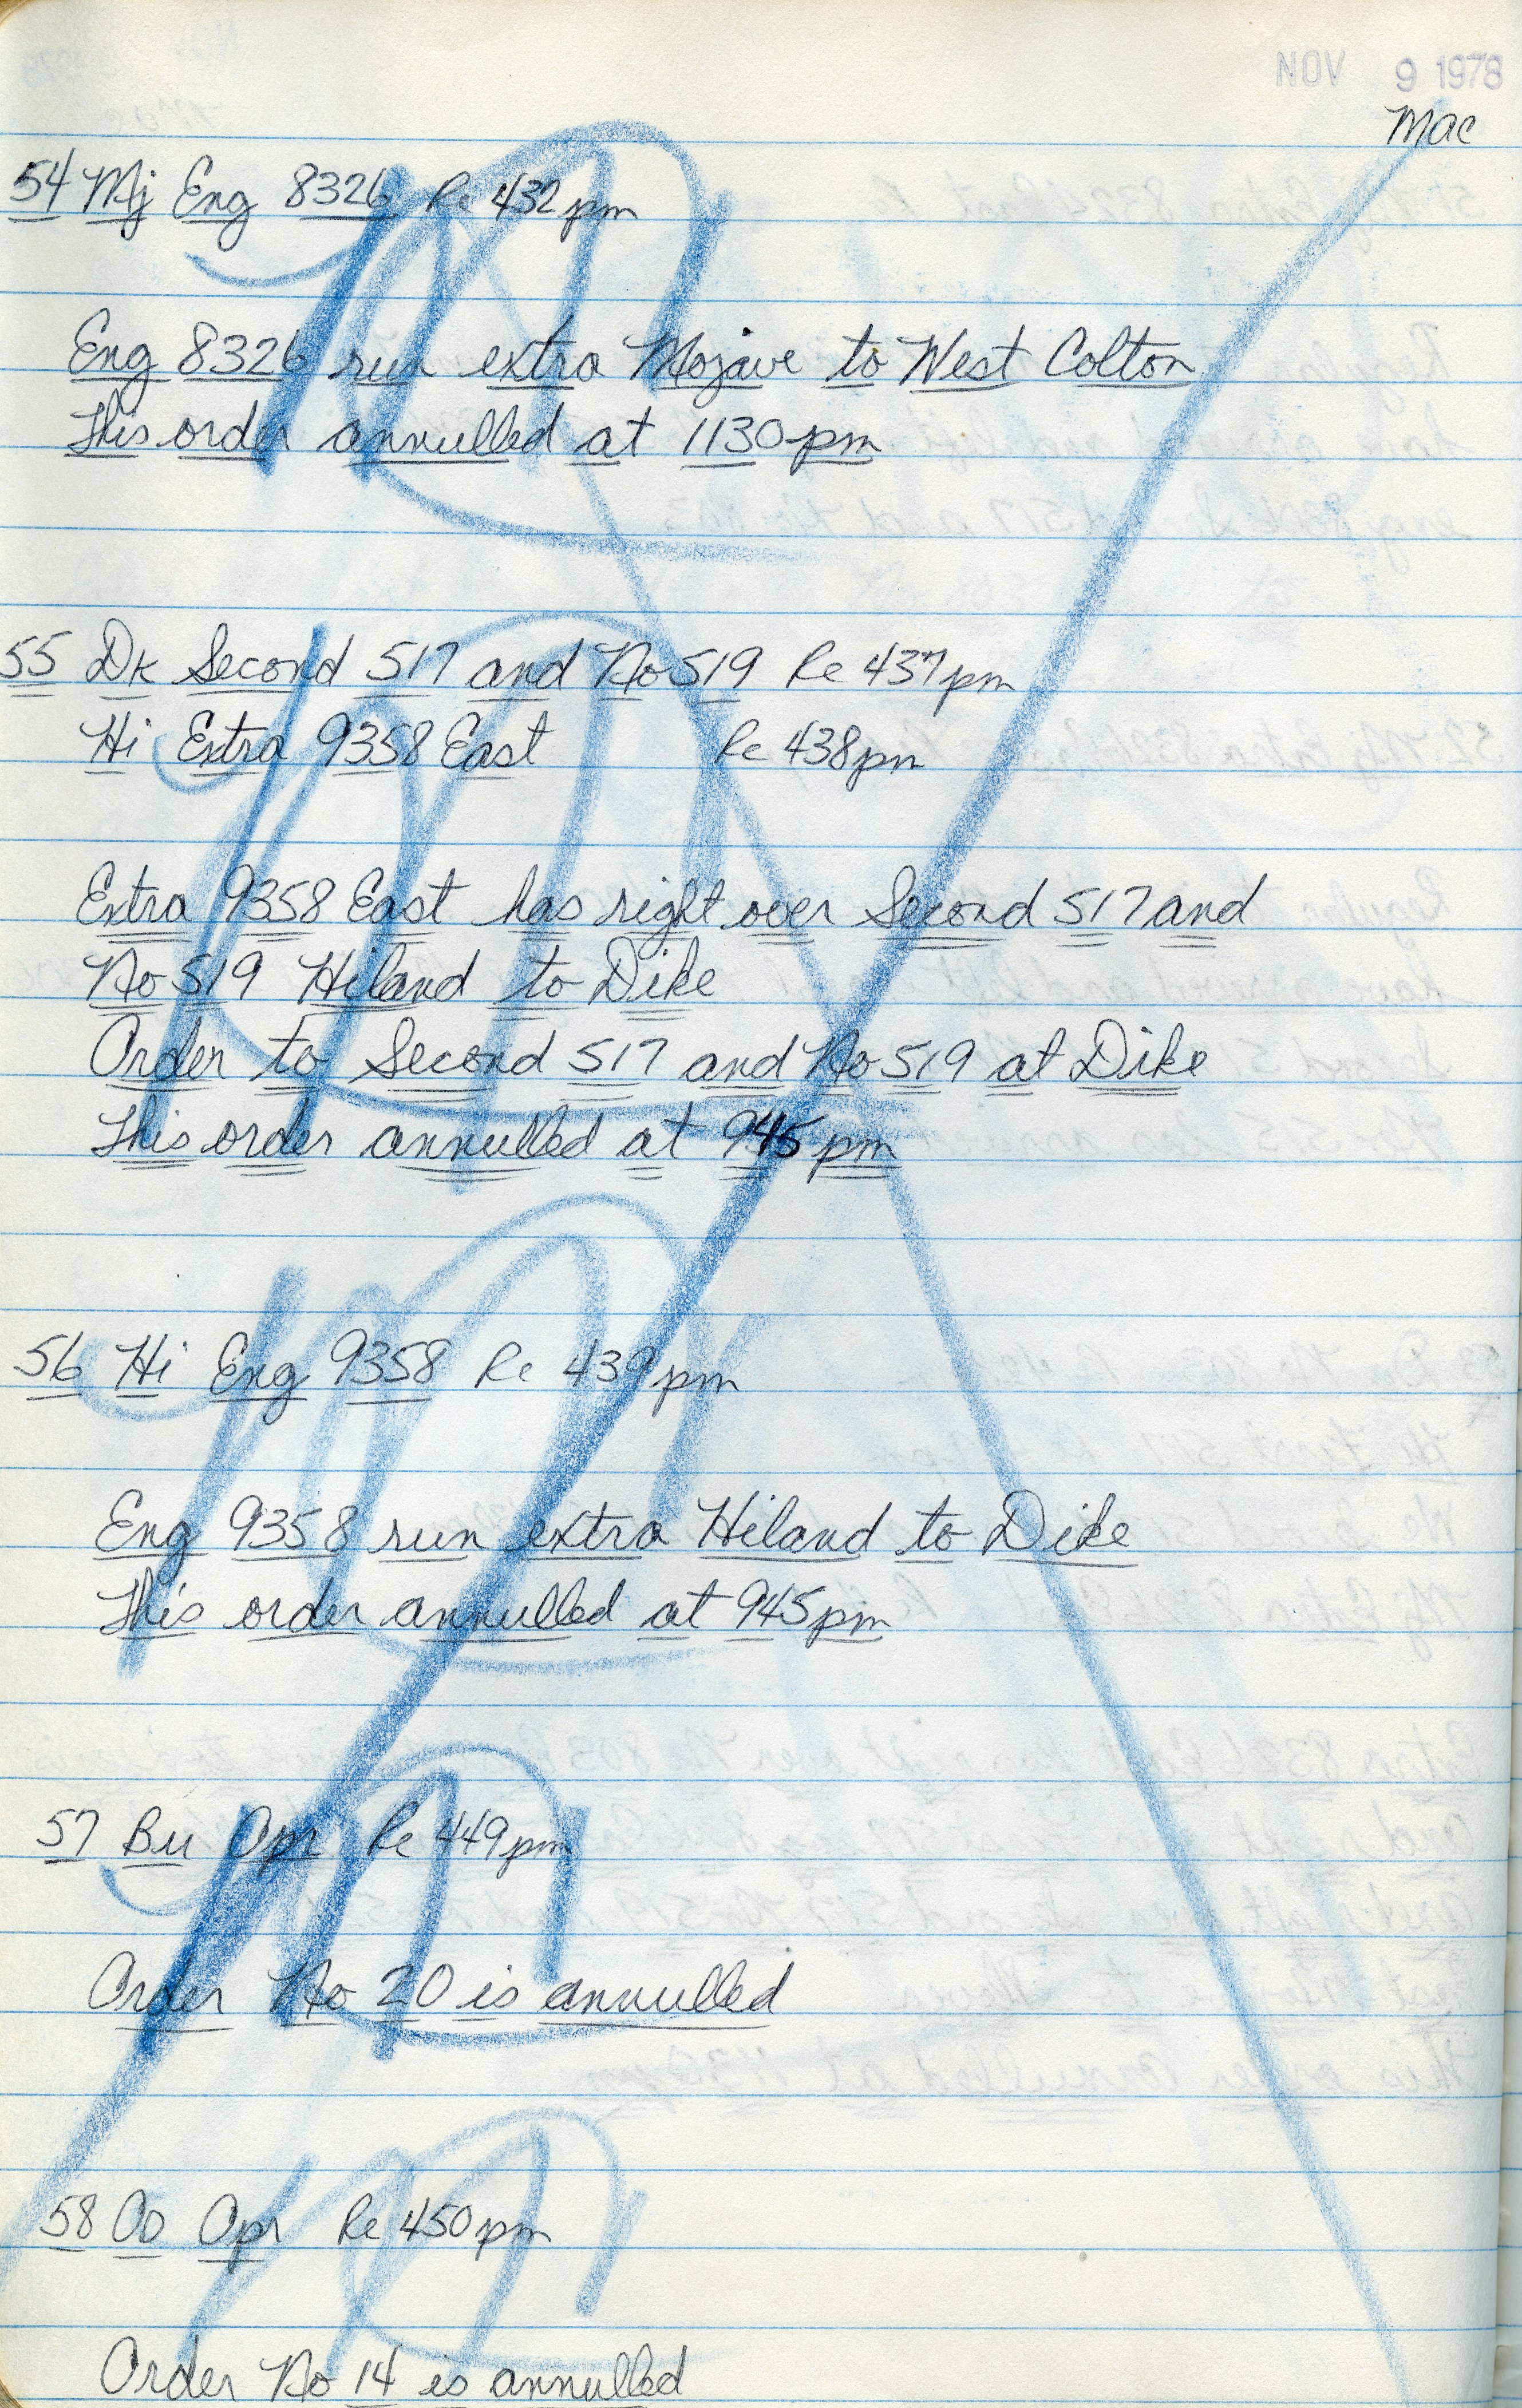 NOV 9 1978
Mac
54 Mj Eng 8326 Re 432pm
Eng 8326 run extra Mojave to West Colton
This order annulled at 1130pm
55 Dk Second 517 and No 519 Re 437pm
Hi Extra 9358 East Re 438pm
Extra 9358 East has right over Second 517 and
No 519 Hiland to Dike
Order to Second 517 and No 519 at Dike
This order annulled at 945pm
56 Hi Eng 9358 Re 439pm
Eng 9358 run extra Hiland to Dike
This order annulled at 945pm
57 Bu Opr Re 449pm
Order No 20 is annulled
58 Co Opr Re 450pm
Order No 14 is annulled